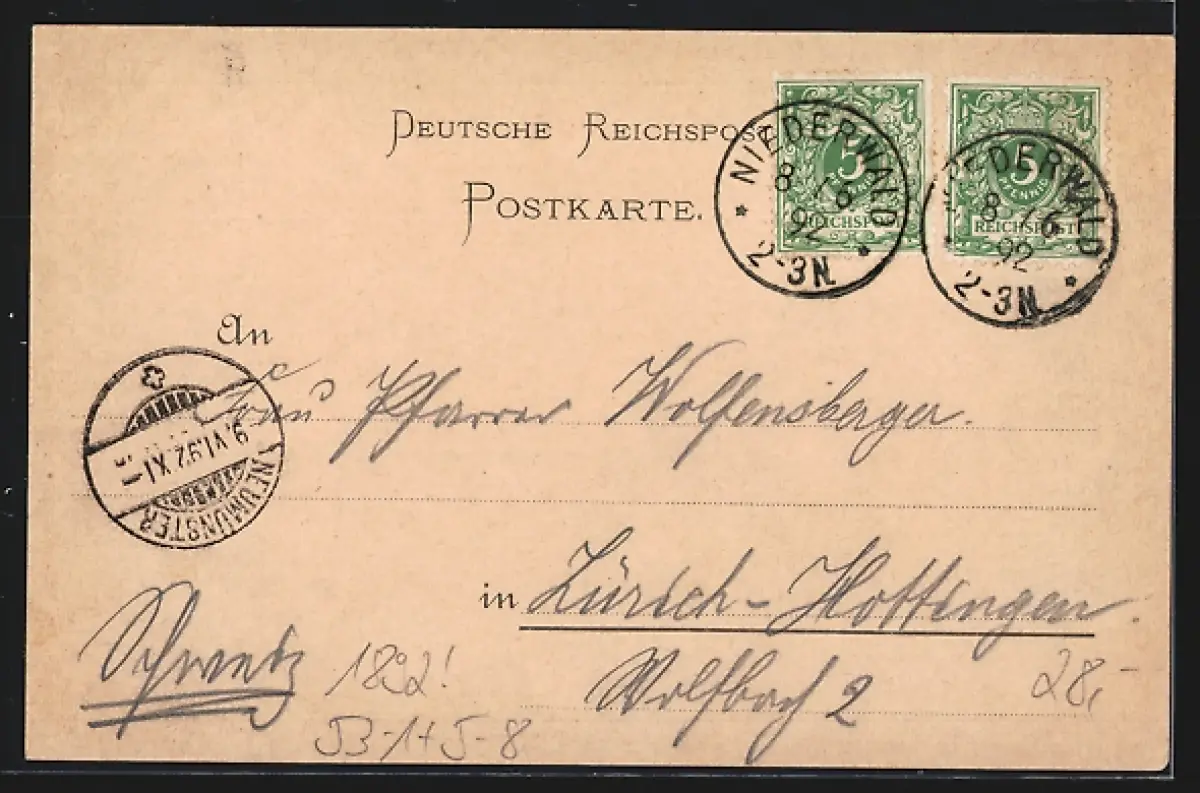 DEUTSCHE REICHSPOST
POSTKARTE.
5
PFENNIG
REICHSPOST
5
PFENNIG
REICHSPOST
NIEDERWALD
8 / 6
92
2-3N.
NIEDERWALD
8 / 6
92
2-3N.
An
Frau Pfarrer Wolfensberger.
9.VI.92.XI
NEUMÜNSTER
in Zürich-Hottingen.
Wolfbach 2
Schweiz
1892!
28,-
53-1+5-8